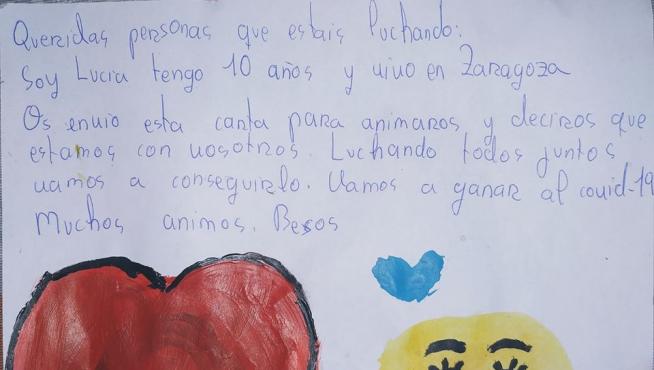 Queridas personas que estais luchando:
Soy Lucia tengo 10 años y vivo en Zaragoza
Os envio esta carta para animaros y deciros que
estamos con vosotros. Luchando todos juntos
vamos a conseguirlo. Vamos a ganar al covid-19
Muchos animos. Besos